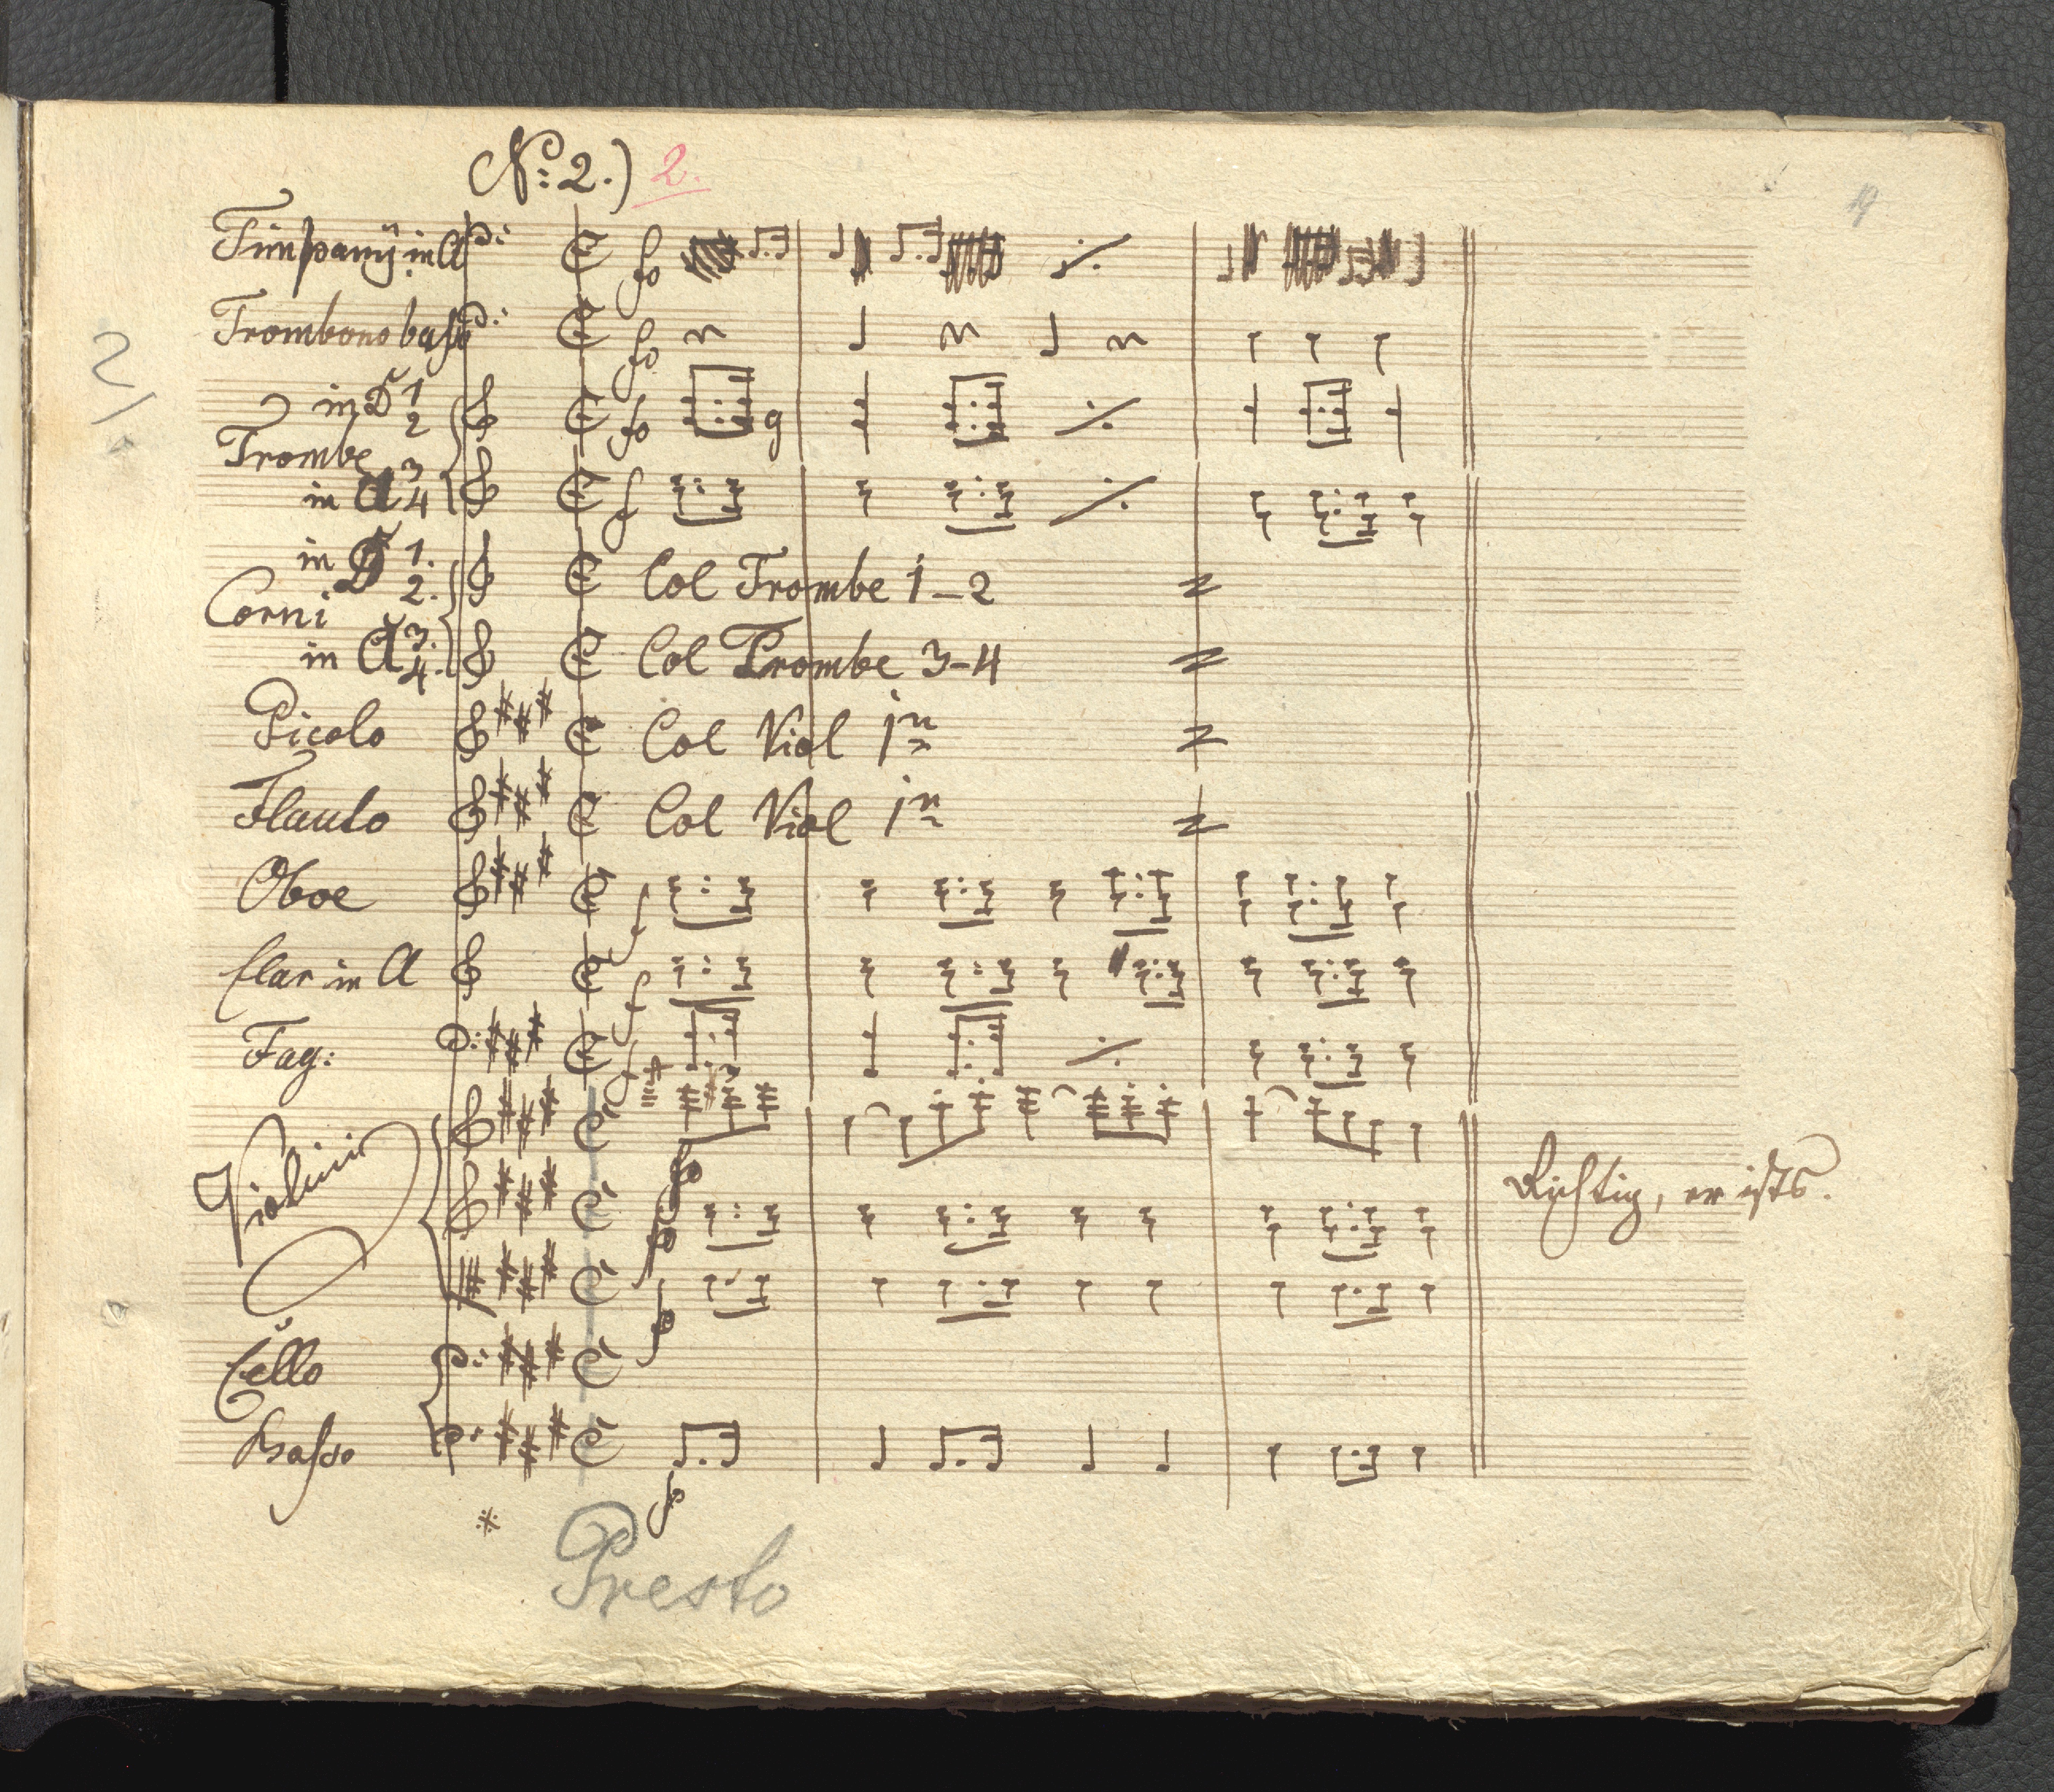 No: 2.) 2.
19
Timpany in A
fo
Trombono basso
fo
2/
in D 1 2
fo
Trombe
in A 3 4
f
in D 1. 2.
Col Trombe 1-2
Corni
in A 3. 4.
Col Trombe 3-4
Picolo
Col Viol 1n
Flauto
Col Viol 1n
Oboe
f
Clar in A
f
Fag:
f
Violini
fo
Richtig, er ists.
Cello
Basso
Presto